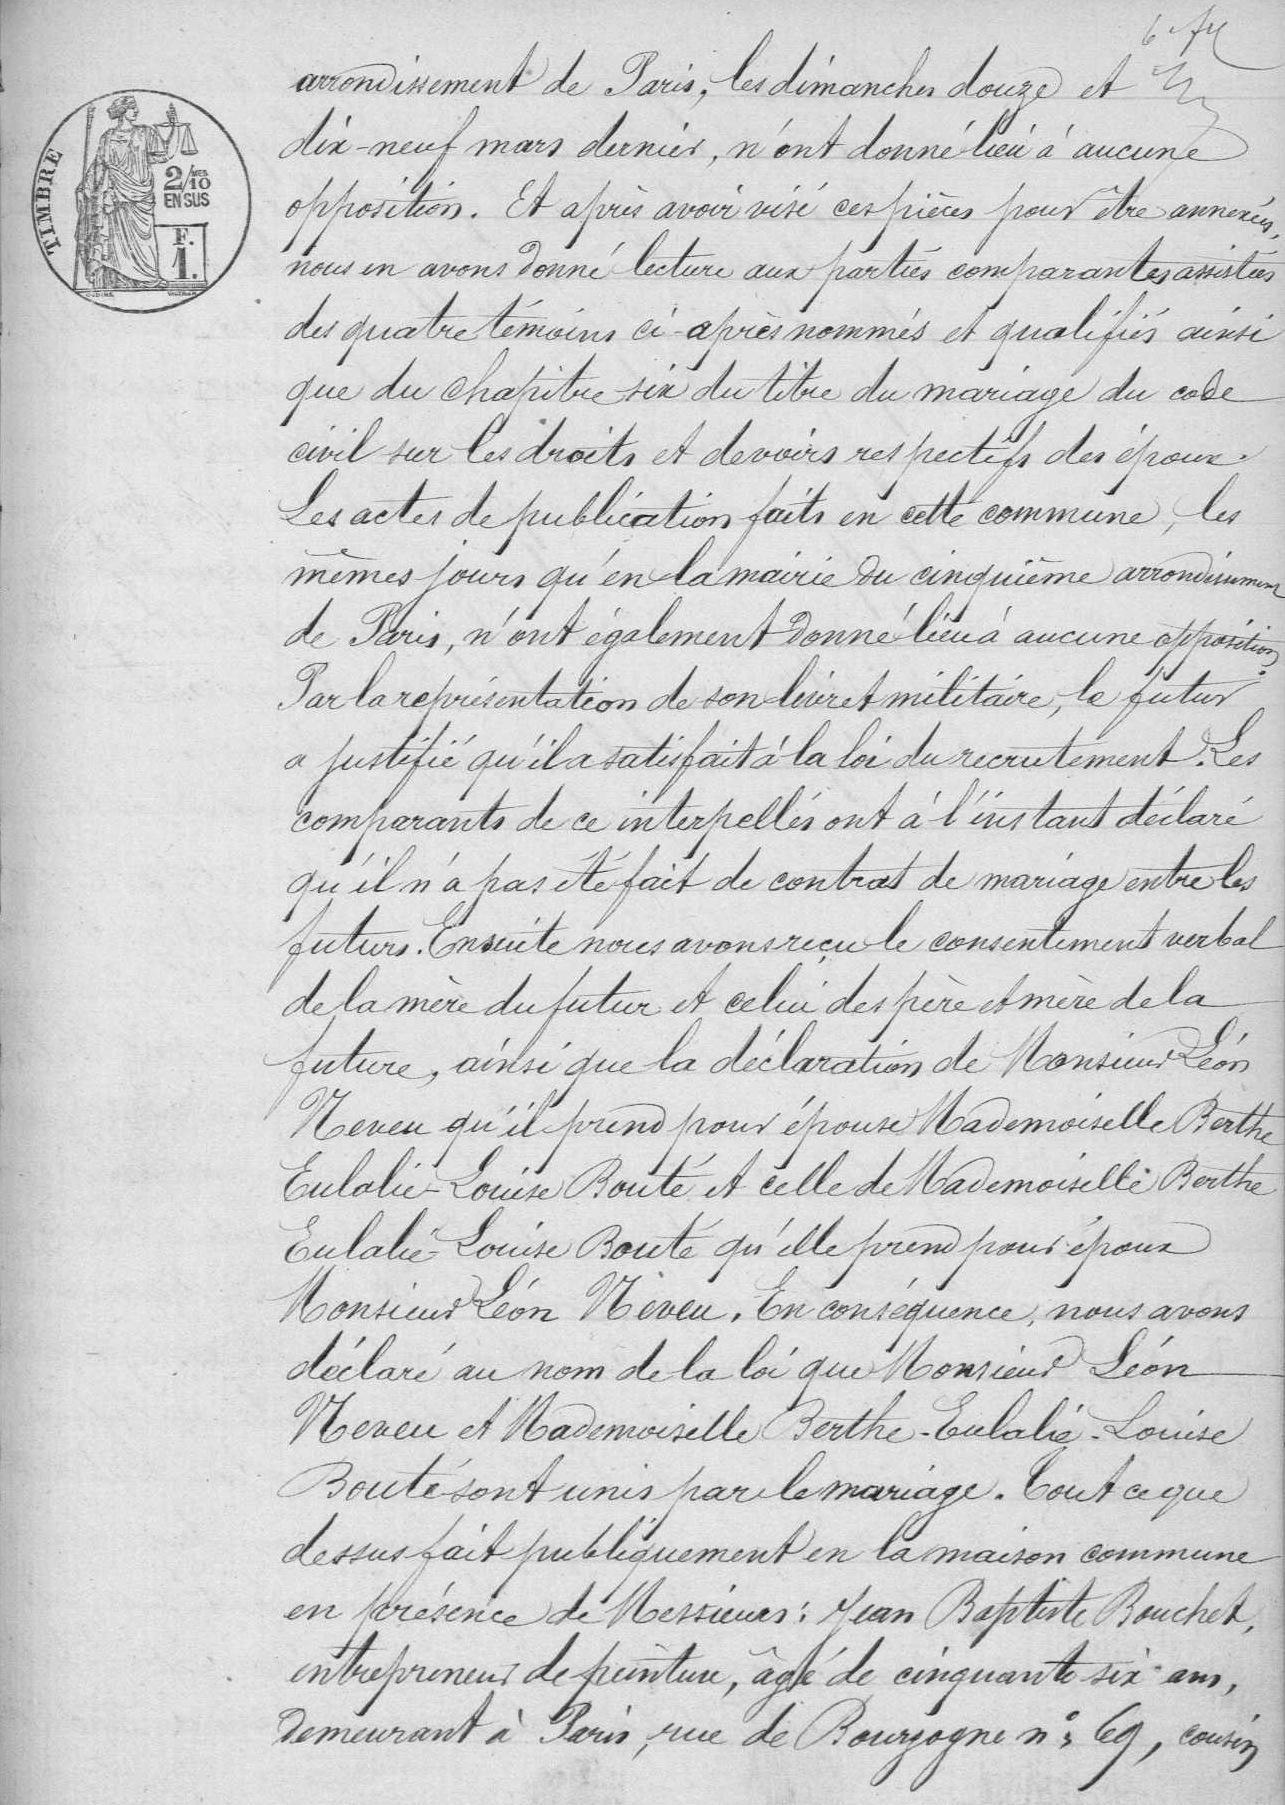 6e ft
arrondissement de Paris, les dimanches douze et
dix-neuf mars dernier, n'ont donné lieu à aucune
opposition. Et après avoir visé ces pièces pour être annexées,
nous en avons donné lecture aux parties comparantes assistées
des quatre témoins ci-après nommés et qualifiés ainsi
que du chapitre six du titre du mariage du code
civil sur les droits et devoirs respectifs des époux.
Les actes de publication faits en cette commune, les
mêmes jours qu'en la mairie du cinquième arrondissement
de Paris, n'ont également donné lieu à aucune opposition.
Par la représentation de son livret militaire, le futur
a justifié qu'il a satisfait à la loi du recrutement. Les
comparants de ce interpellés ont à l'instant déclaré
qu'il n'a pas été fait de contrat de mariage entre les
futurs. Ensuite nous avons reçu le consentement verbal
de la mère du futur et celui des père et mère de la
future, ainsi que la déclaration de Monsieur Léon
Neveu qu'il prend pour épouse Mademoiselle Berthe
Eulalie-Louise Bouté et celle de Mademoiselle Berthe
Eulalie-Louise Bouté qu'elle prend pour époux
Monsieur Léon Neveu. En conséquence, nous avons
déclaré au nom de la loi que Monsieur Léon
Neveu et Mademoiselle Berthe-Eulalie-Louise
Bouté sont unis par le mariage. Tout ce que
dessus fait publiquement en la maison commune
en présence de Messieurs: Jean Baptiste Bouchet,
entrepreneur de peinture, âgé de cinquante six ans,
demeurant à Paris, rue de Bourgogne n° 69, cousin
TIMBRE
2/10 MES
EN SUS
F.
1.
OUDINÉ